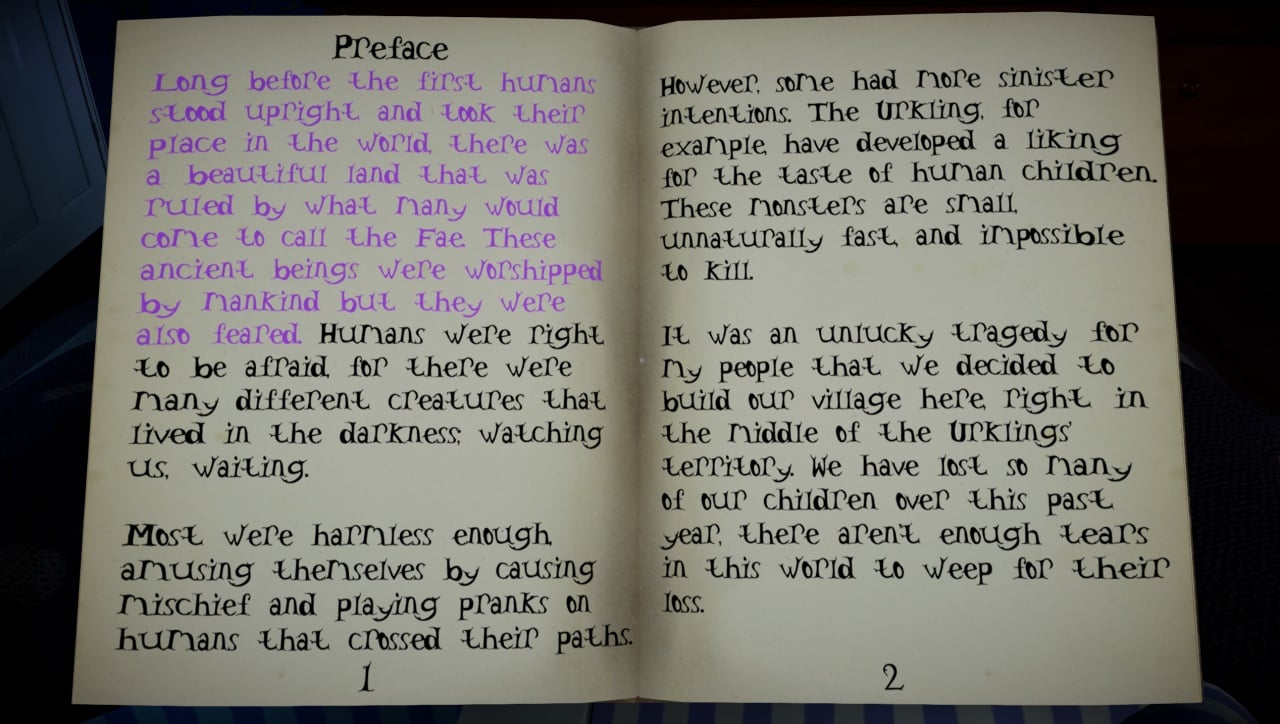 Preface
Long before the first humans
stood upright and took their
place in the world, there was
a beautiful land that was
ruled by what many would
come to call the Fae. These
ancient beings were worshipped
by mankind but they were
also feared. Humans were right
to be afraid, for there were
many different creatures that
lived in the darkness; watching
us, waiting.
Most were harmless enough,
amusing themselves by causing
mischief and playing pranks on
humans that crossed their paths.
1
However, some had more sinister
intentions. The Urkling, for
example, have developed a liking
for the taste of human children.
These monsters are small,
unnaturally fast, and impossible
to kill.
It was an unlucky tragedy for
my people that we decided to
build our village here, right in
the middle of the Urklings'
territory. We have lost so many
of our children over this past
year, there aren't enough tears
in this world to weep for their
loss.
2